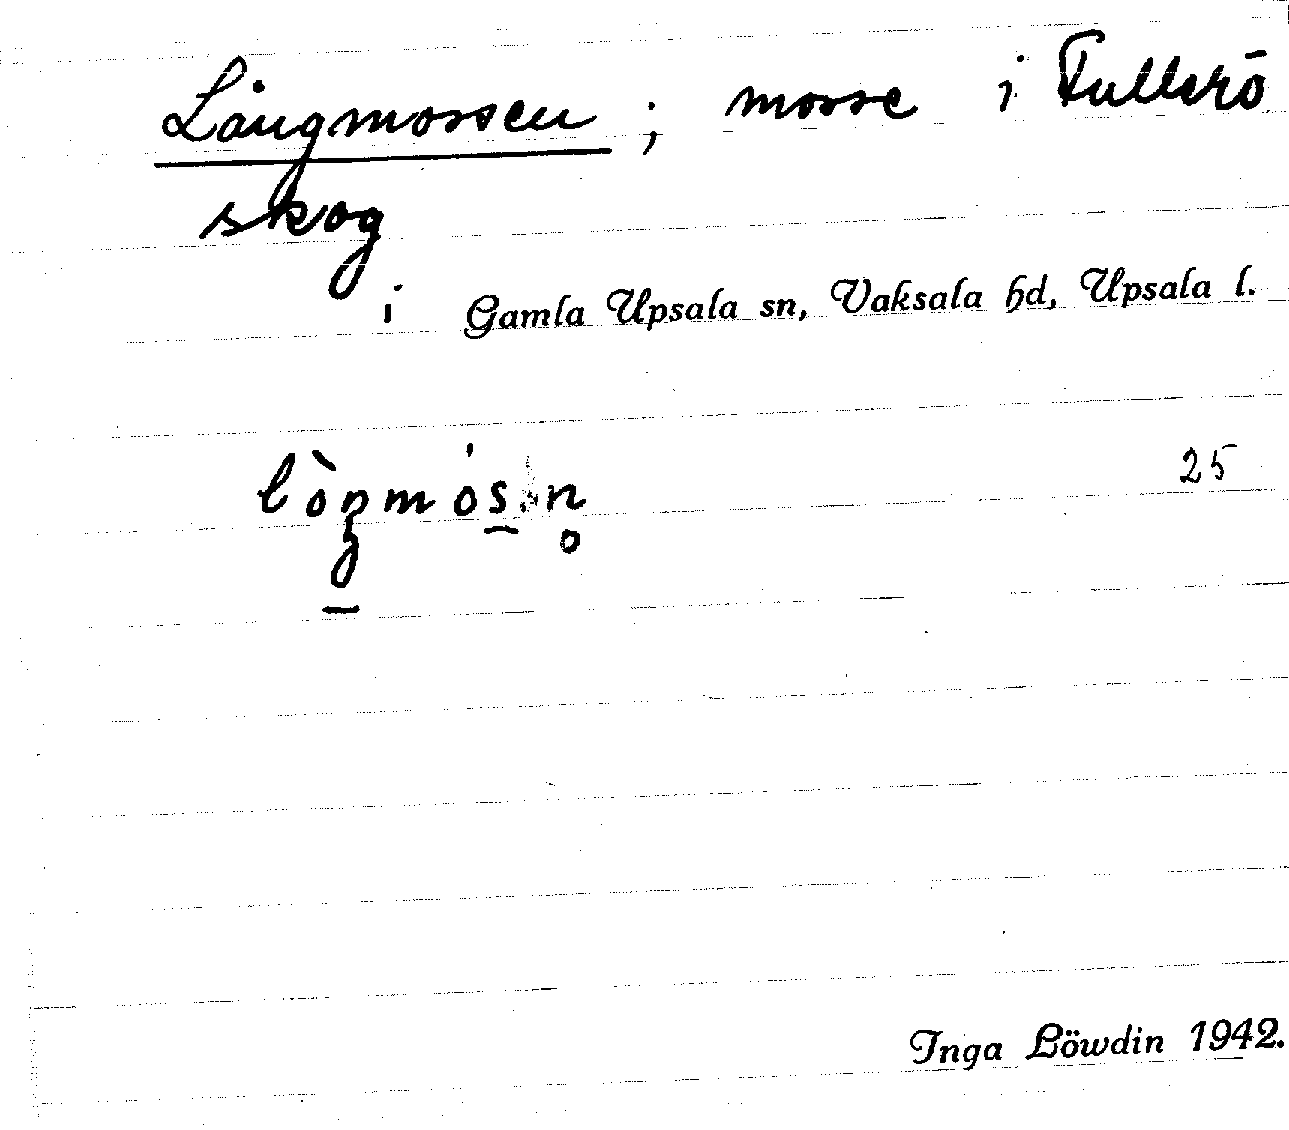 Långmossen; mosse i Fullerö
skog
i Gamla Upsala sn, Vaksala hd, Upsala l.
25
Inga Löwdin 1942.